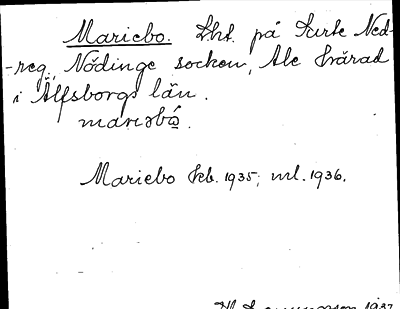 Mariebo. Lht. på Surte Ned-
-reg, Nödinge socken, Ale härad
i Älfsborgs län.
Mariebo kb. 1935; ml. 1936.
1937